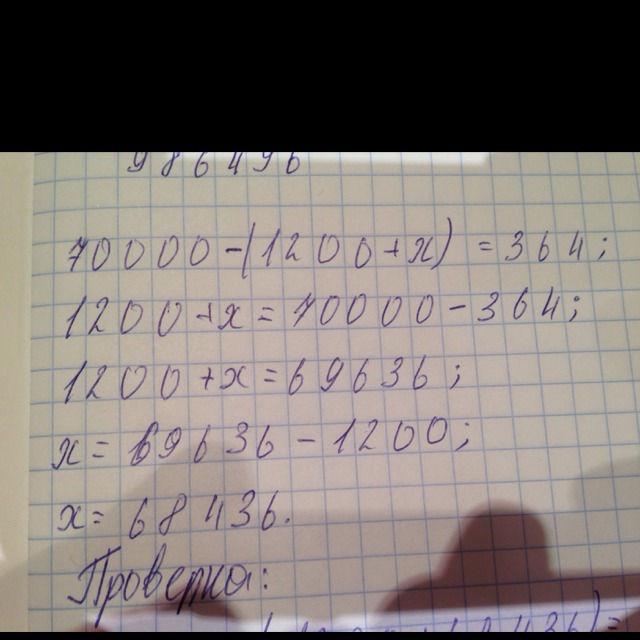 986496
70000-(1200+x) = 364;
1200+x = 70000-364;
1200+x=69636;
x = 69636-1200;
x= 68436.
Проверка: